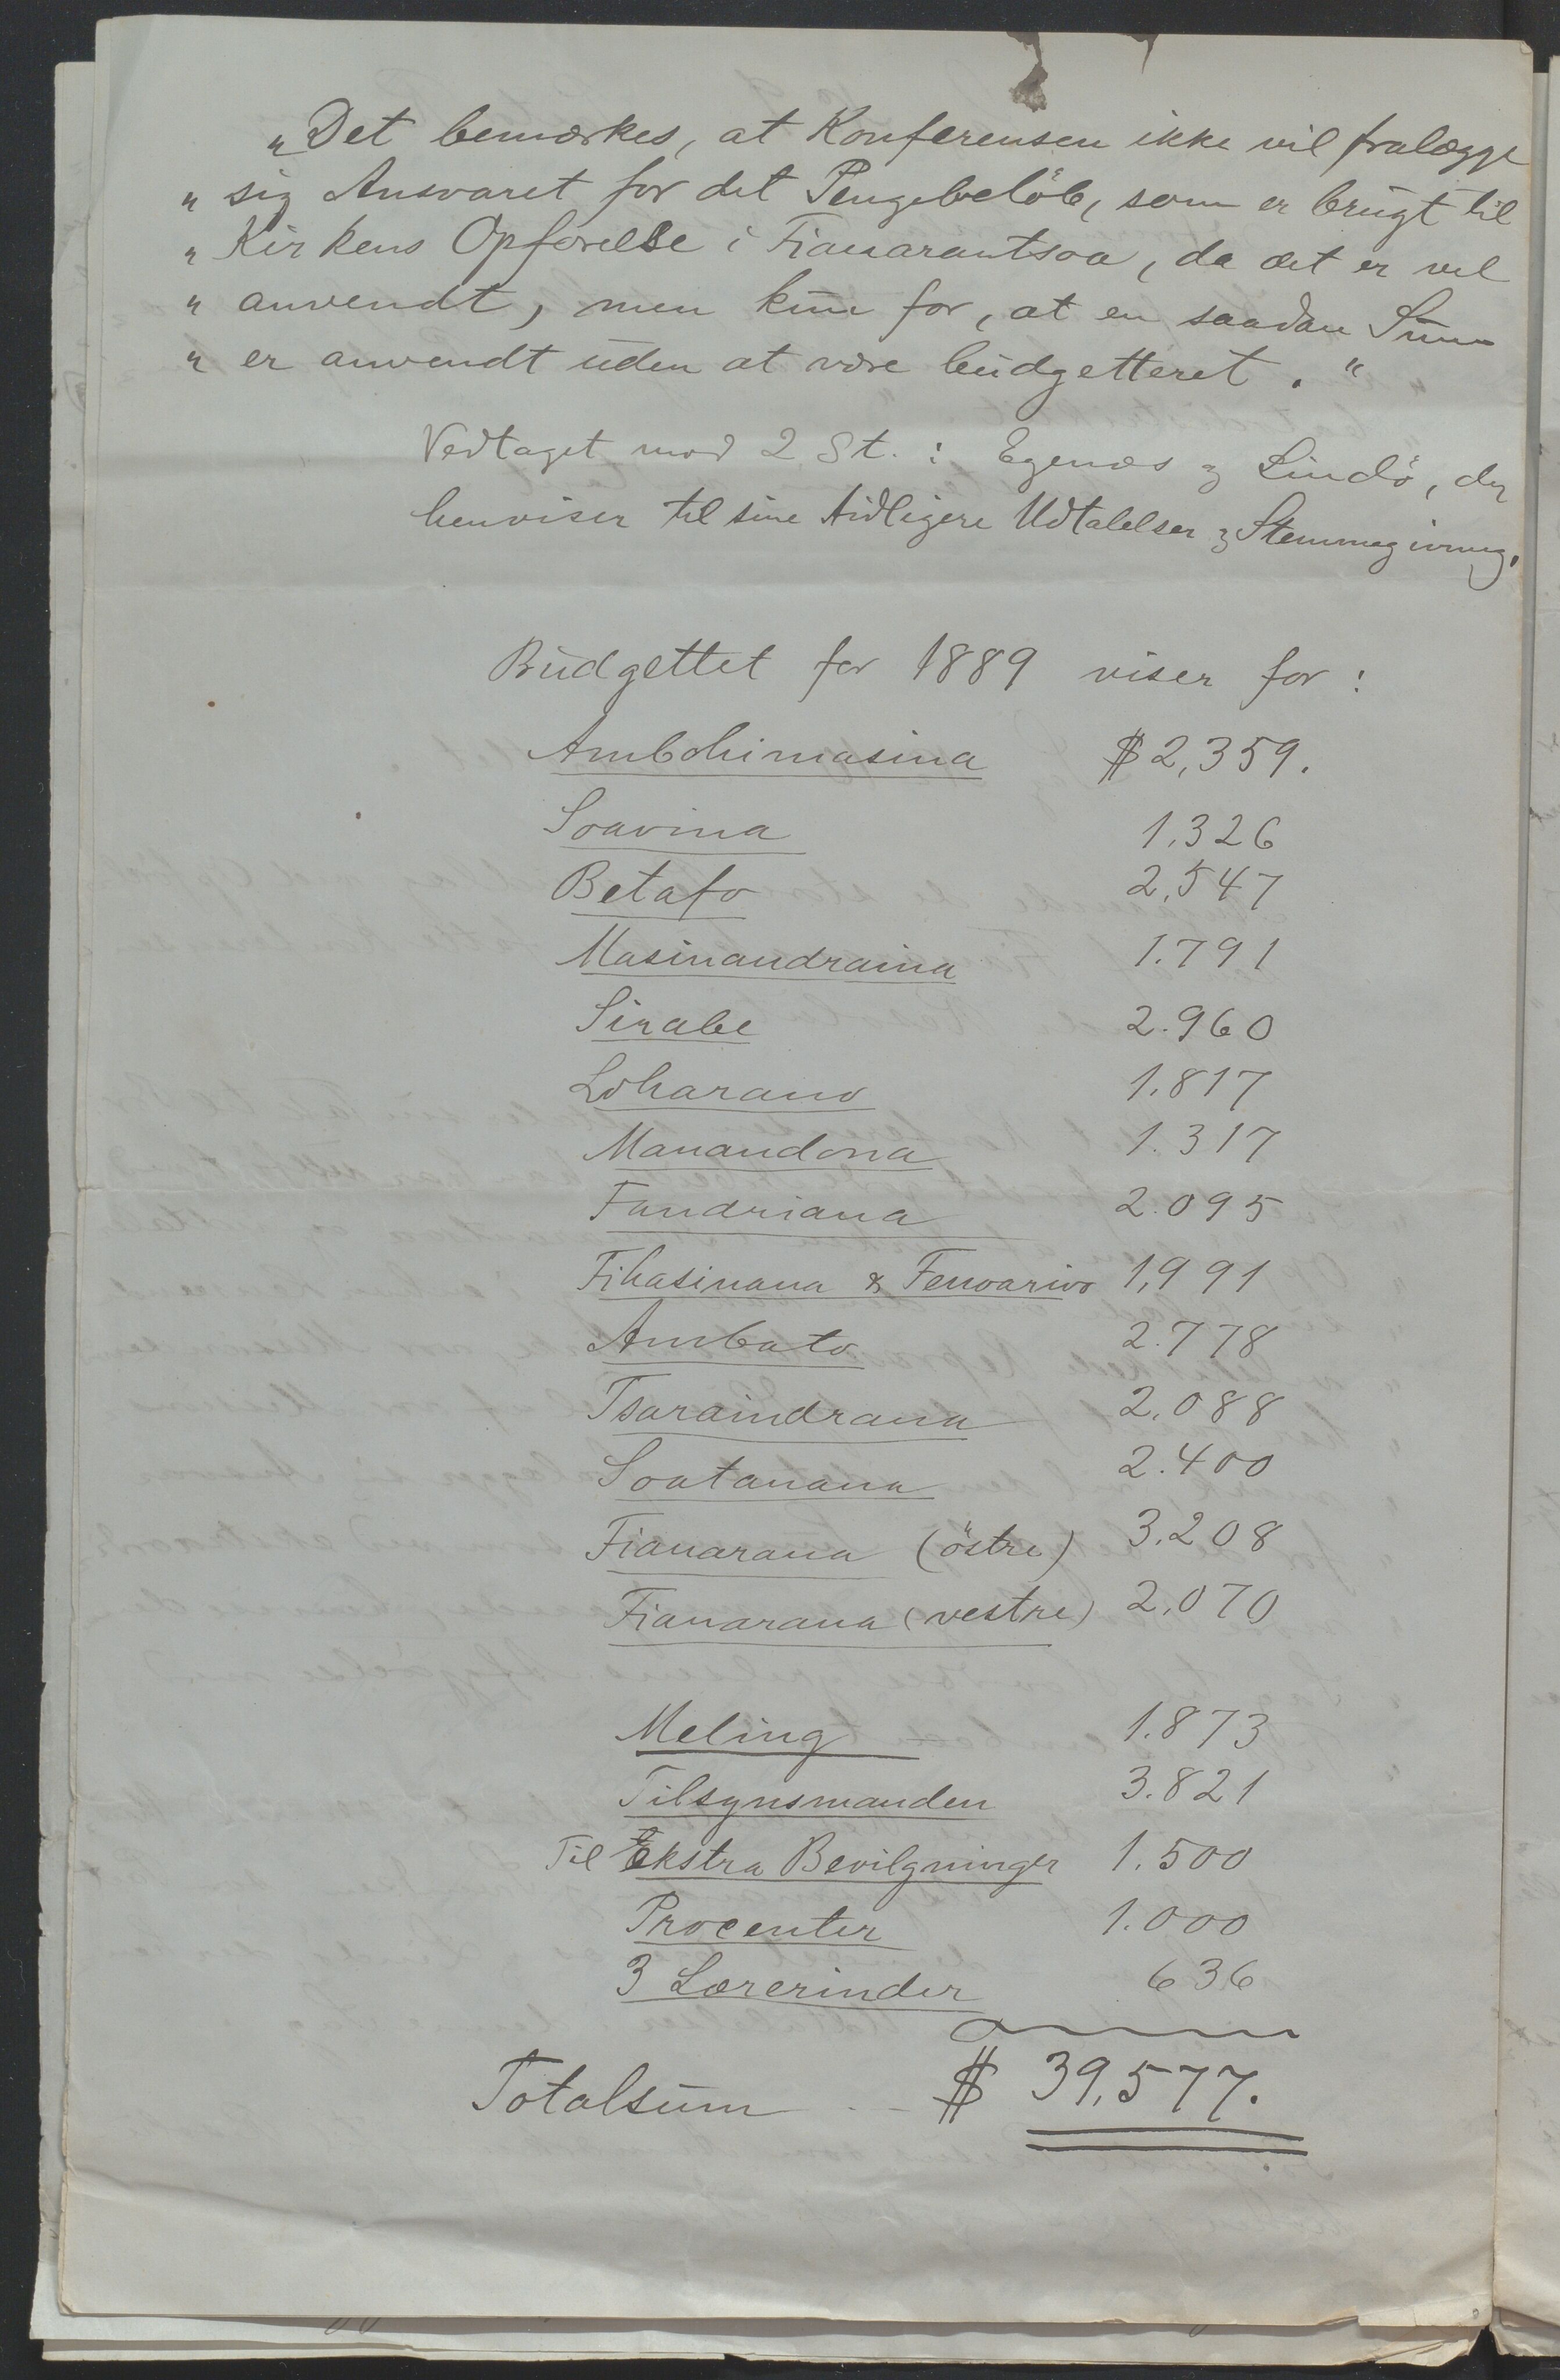 „Det bemærkes, at Konferensen ikke vil fralægge
„ sig Ansvaret for det Pengebelöb, som er brugt til
„ Kirkens Opförelse i Fianarantsoa, da det er vel
„ anvendt, men kun for, at en saadan Sum
„ er anvendt uden at være budgetteret. "
Vedtaget mod 2 St.: Egenæs og Lindö, der
henviser til sine tidligere Udtalelser og Stemmegivning.
Budgettet for 1889 viser for:
Ambohimasina $ 2,359.
Soavina 1,326
Betafo 2,547
Masinandraina 1.791
Sirabe 2.960
Loharano 1.817
Manandona 1.317
Fandriana 2.095
Fihasinana & Fenoarivo 1,991
Ambato 2.778
Tsaraindrana 2,088
Soatanana 2.400
Fianarana (östre) 3.208
Fianarana (vestre) 2,070
Meling 1.873
Tilsynsmanden 3.821
Til Ekstra Bevilgninger 1.500
Procenter 1.000
3 Lærerinder 636
Totalsum $ 39,577.